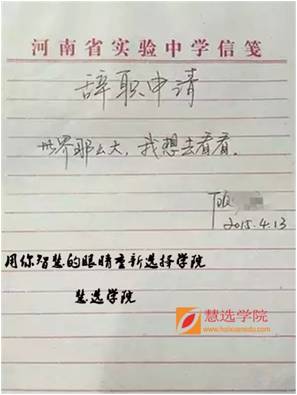 河南省实验中学信笺
辞职申请
世界那么大，我想去看看。
2015.4.13
用你智慧的眼睛重新选择学院
慧选学院
慧选学院